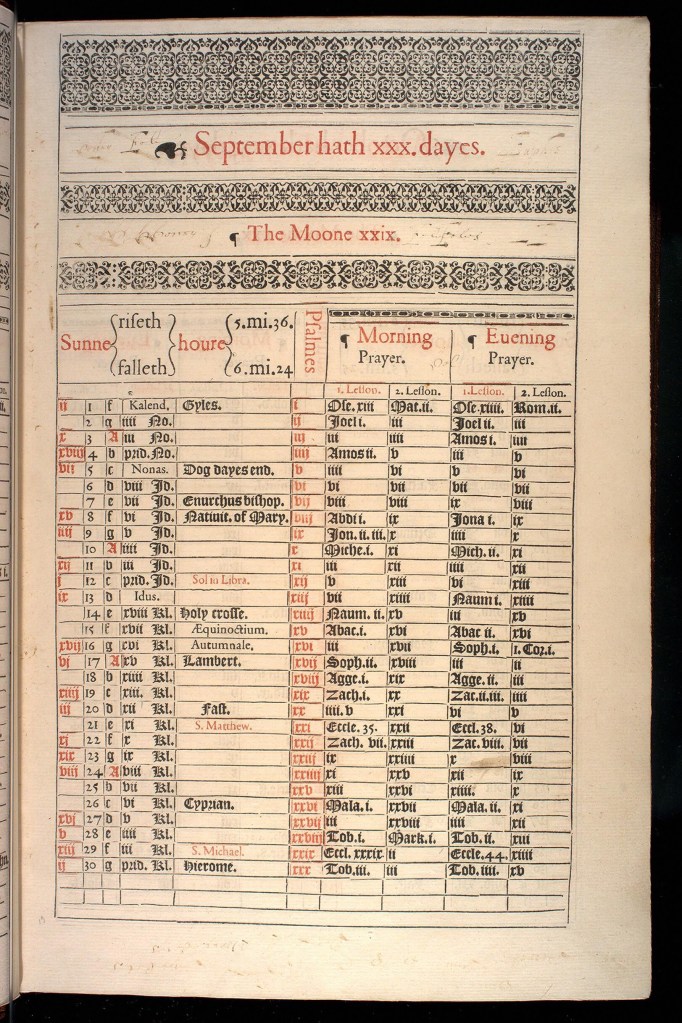 September hath xxx. dayes.
¶ The Moone xxix.
Sunne riseth falleth houre 5. mi. 36. 6. mi. 24 Psalmes ¶ Morning Prayer. ¶ Euening Prayer.
1. Lesson. 2. Lesson. 1. Lesson. 2. Lesson.
ij 1 f Kalend. Gyles. i Ose. xiii Mat. ii. Ose. xiiii. Rom. ii.
2 g iiii No. ij Joel i. iii Joel ii. iii
x 3 A iii No. iij iii iiii Amos i. iiii
xviij 4 b prid. No. iiij Amos ii. v iii v
vij 5 c Nonas. Dog dayes end. v iiii vi v vi
6 d viii Jd. vi vi vii vii vii
7 e vii Jd. Enurchus bishop. vij viii viii ix viii
xv 8 f vi Jd. Natiuit. of Mary. viij Abdi i. ix Jona i. ix
iiij 9 g v Jd. ix Jon. ii. iii. x iiii x
10 A iiii Jd. x Miche. i. xi Mich. ii. xi
xij 11 b iii Jd. xi iii xii iiii xii
j 12 c prid. Jd. Sol in Libra. xij v xiii vi xiii
ix 13 d Idus. xiij vii xiiii Naum i. xiiii
14 e xviii Kl. Holy crosse. xiiij Naum. ii. xv iii xv
15 f xvii Kl. Æquinoctium. xv Abac. i. xvi Abac ii. xvi
xvij 16 g cvi Kl. Autumnale. xvi iii xvii Soph. i. 1. Cor. i.
vj 17 A xv Kl. Lambert. xvij Soph. ii. xviii iii ii
18 b xiiii Kl. xviij Agge. i. xix Agge. ii. iii
xiiij 19 c xiii. Kl. xix Zach. i. xx Zac. ii. iii. iiii
iij 20 d xii Kl. Fast. xx iiii. v xxi vi v
21 e xi Kl. S. Matthew. xxi Eccle. 35. xxii Eccl. 38. vi
xj 22 f x Kl. xxij Zach. vii. xxiii Zac. viii. vii
xix 23 g ix Kl. xxiij ix xxiiii x viii
viij 24 A viii Kl. xxiiij xi xxv xii ix
25 b vii Kl. xxv xiii xxvi xiiii. x
26 c vi Kl. Cyprian. xxvi Mala. i. xxvii Mala. ii. xi
xvj 27 d v Kl. xxvij iii xxviii iiii xii
v 28 e iiii Kl. xxviij Tob. i. Mark. i. Tob. ii. xiii
xiij 29 f iii Kl. S. Michael. xxix Eccl. xxxix ii Eccle. 44. xiiii
ij 30 g prid. Kl. Hierome. xxx Tob. iii. iii Tob. iiii. xv